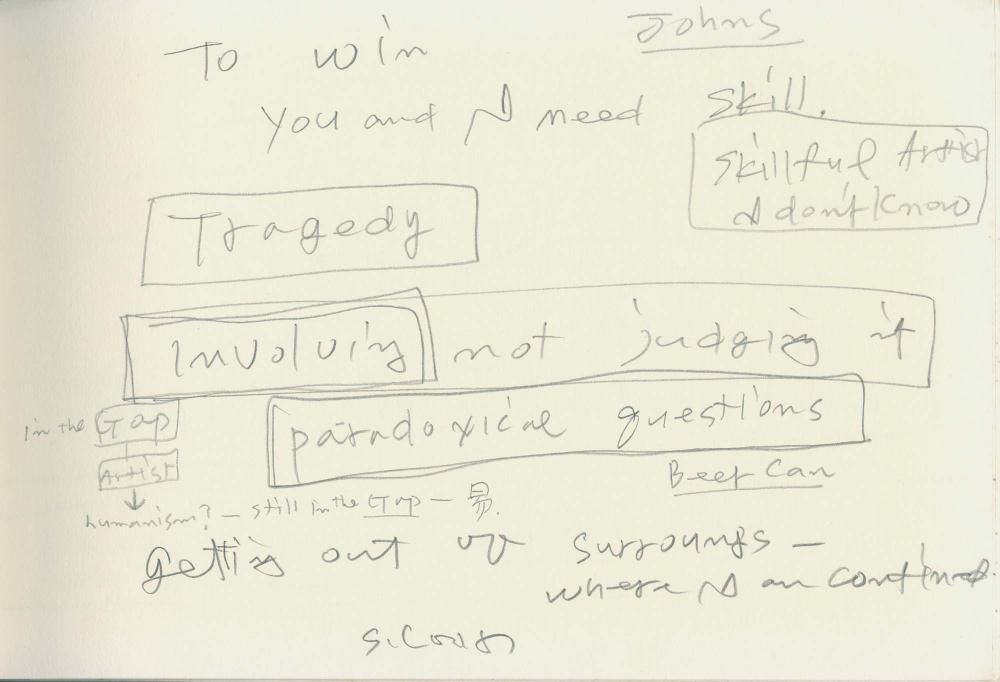 Johns
To win
you and I need skill.
skillful Artist
I don't know
Tragedy
Involving not judging it
in the Gap
paradoxical questions
Artist
Beer Can
humanism? – still in the Gap – 易.
getting out
where I am